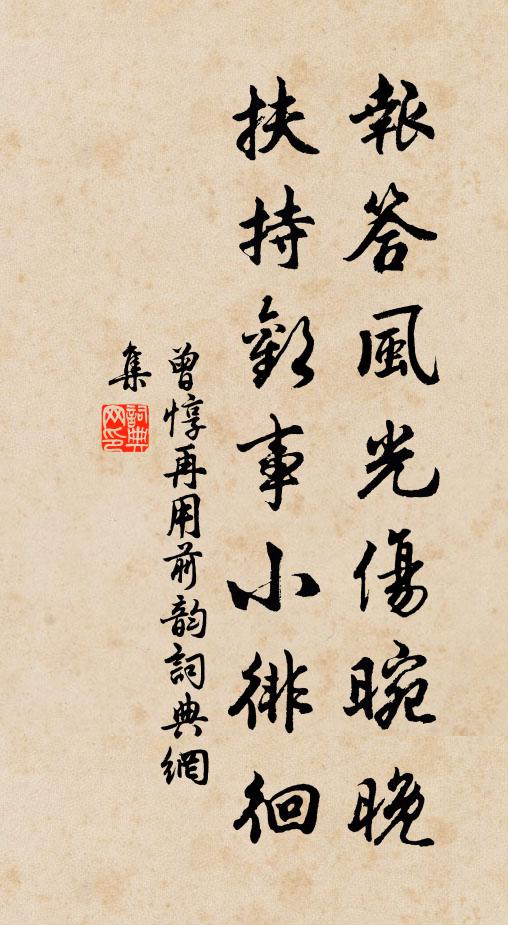 報答風光傷晼晚
扶持歡事小徘徊
曾惇再用前韵詞典網
集
詞典网印